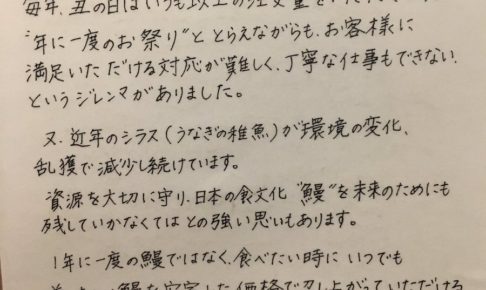 毎年、丑の日はいつも以上の注文量を
"年に一度のお祭り"ととらえながらも、お客様に
満足いただける対応が難しく、丁寧な仕事もできない、
というジレンマがありました。
又、近年のシラス(うなぎの稚魚)が環境の変化、
乱獲で減少し続けています。
資源を大切に守り、日本の食文化"鰻"を未来のためにも
残していかなくてはとの強い思いもあります。
1年に一度の鰻ではなく、食べたい時にいつでも
鰻を安定した価格で召し上がっていただける